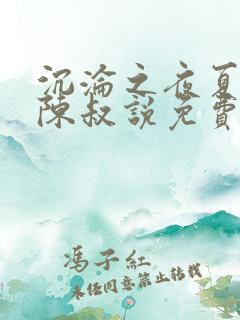 沉淪之夜夏
陳叔說免費
馮子紅
未任同意禁止转载